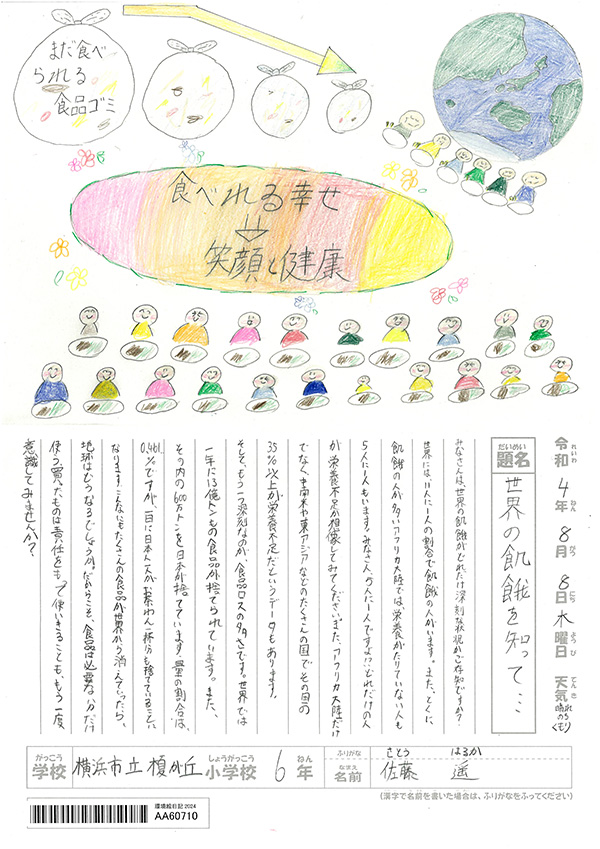 まだ食べ
られる
食品ゴミ
食べれる幸せ
笑顔と健康
令和4年8月8日木曜日 天気 晴れのちくもり
れいわ ねん がつ にち ようび てんき
だいめい
題名
世界の飢餓を知って…
みなさんは、世界の飢餓がどれだけ深刻な状況かご存知ですか?
世界には、11人に1人の割合で飢餓の人がいます。また、とくに
飢餓の人が多いアフリカ大陸では栄養がたりていない人も
5人に1人もいます!みなさん、5人に1人ですよ!?どれだけの人
が栄養不足か想像してみてください。また、アフリカ大陸だけ
でなく中南米や東アジアなどのたくさんの国でその国の
35%以上が栄養不足だというデータもあります。
そして、もう一つ深刻なのが、食品ロスの多さです。世界では
一年に13億トンもの食品が捨てられています。また、
その内の600万トンを日本が捨てています。量の割合は、
0.461%ですが、一日に日本人一人がお茶わん一杯分も捨てていることに
なります。こんなにもたくさんの食品が世界から消えていったら、
地球はどうなるでしょうか。だからこそ、食品は必要な分だけ
使う、買ったものは責任をもって使いきることも、もう一度、
意識してみませんか?
がっこう しょうがっこう ねん
学校 横浜市立榎が丘小学校 6年
ふりがな さとう はるか
なまえ
名前 佐藤 遥
(漢字で名前を書いた場合は、ふりがなをふってください)
環境絵日記 2024
AA60710